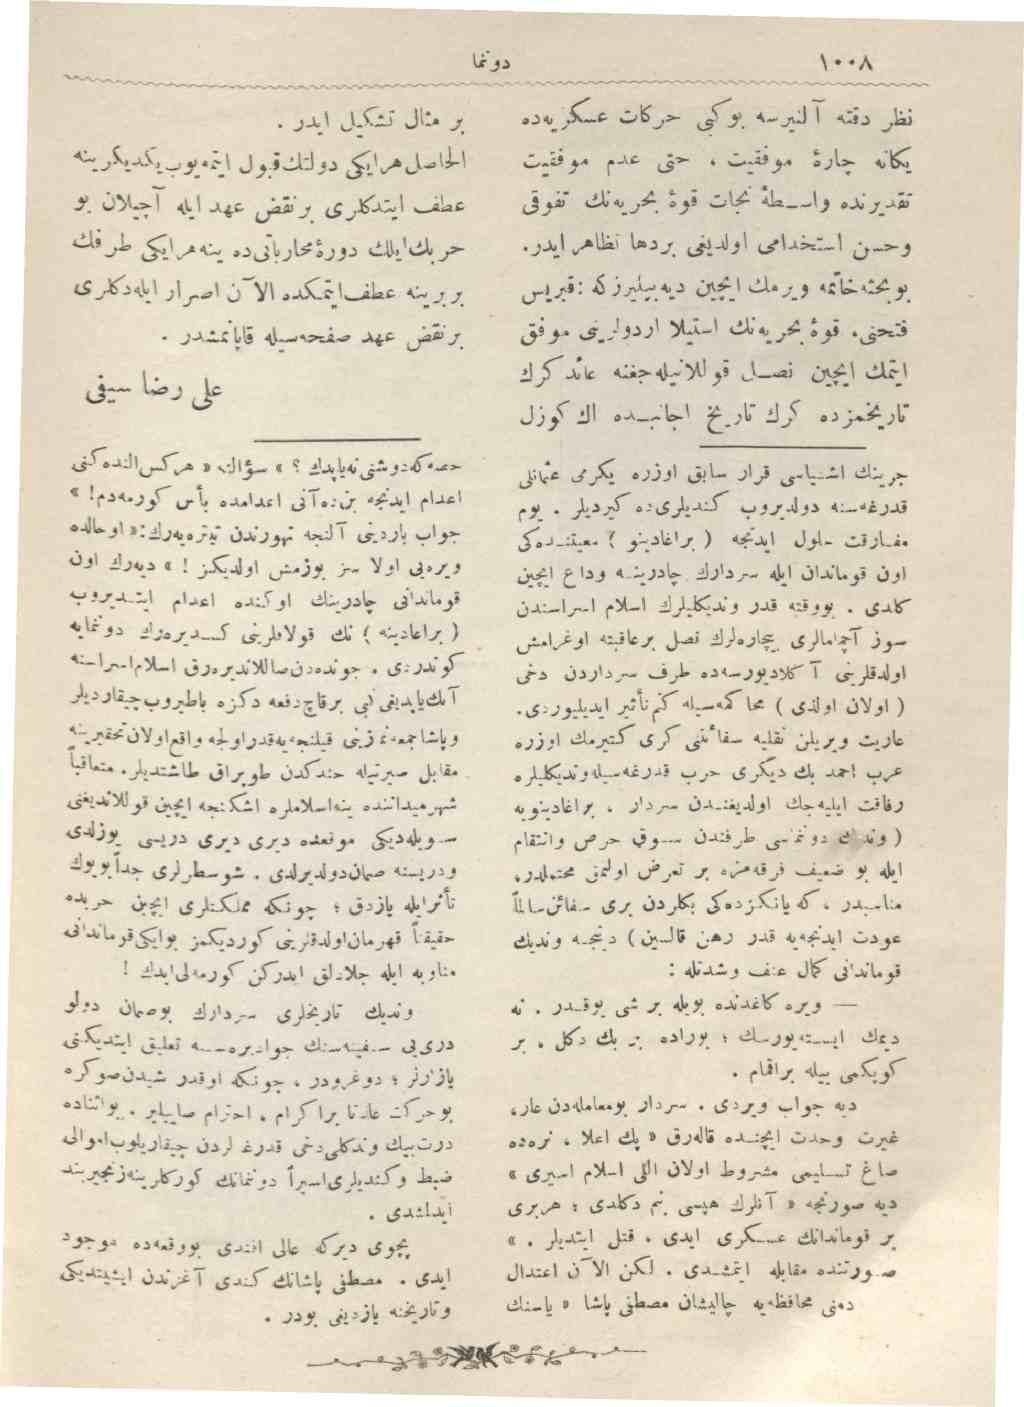 ١٠٠٨
دوننما
نظر دقته آلنیرسه بوکبی حرکات عسکریه‌ده
یکانه چارهٔ موفقیت ، حتی عدم موفقیت
تقدیرنده واسـطهٔ نجات قوهٔ بحریه‌نك تفوقی
وحسن استخدامی اولدیغی بردها تظاهر ایدر.
بوبحثه‌خاتمه ویرمك ایچین دیه‌بیلیرزکه : قبریس
فتحنی، قوهٔ بحریه‌نك استیلا اردولرینی موفق
ایتمك ایچین نصـل قوللانیله‌جغنه عائد کرك
تاریخمزده کرك تاریخ اجانبـده اك کوزل
بر مثال تشکیل ایدر .
الحاصل‌هرایکی دولتك‌قبول ایتمه‌یوب‌یکدیکرینه
عطف ایتدکلری برنقض عهد ایله آچیلان بو
حرب‌ك‌ایلك دورهٔ‌محارباتی‌ده ینه‌هرایکی طرفك
بربرینه عطف‌ایتمکده الآن اصرار ایله‌دکلری
برنقض عهد صفحه‌سیله قاپانمشدر .
علی رضا سیفی
جرینك اشـیاسی قرار سابق اوزره یکرمی عثمانلی
قدرغه‌سنه دولدیروب کندیلری‌ده کیردیلر . یوم
مفـارقت حلول ایدنجه ( براغادینو ) معیتنـده‌کی
اون قوماندان ایله سردارك چادرینـه وداع ایچین
کلدی . بووقته قدر وندیکلیلرك اسلام اسراسندن
سوز آچمامالری بیچاره‌لرك نصل برعاقبته اوغرامش
اولدقلرینی آکلادیورسه‌ده طرف سرداردن دخی
( اولان اولدی ) محاکمه‌سیله کتم تأثیر ایدیلیوردی.
عاریت ویریلن نقلیه سفائننی کری کتیرمك اوزره
عرب احمد بك دیکری حرب قدرغه‌سیله‌وندیکلیلره
رفاقت ایلیه‌جك اولدیغنـدن سردار ، براغادینویه
( وندك دوننماسی طرفندن سـوق حرص وانتقام
ایله بو ضعیف فرقه‌مزه بر تعرض اولنمق محتملدر،
مناسبدر ، که یانکزده‌کی بکلردن بری سفائن‌سالماً
عودت ایدنجه‌یه قدر رهن قالسین ) دینجـه وندیك
قوماندانی کمال عنف وشدتله :
— ویره کاغدنده بویله بر شی یوقـدر . نه
دیمك ایسـته‌یورسـك ؛ بوراده بر بك دکل ، بر
کوپکمی بیله براقمام .
دیه جواب ویردی . سردار بومعامله‌دن عار،
غیرت وحدت ایچنـده قاله‌رق « پك اعلا ، نره‌ده
صاغ تسـلیمی مشروط اولان اللی اسلام اسیری »
دیه صورنجه « آنلرك هپسی بنم دکلدی ؛ هربری
بر قوماندانك عسـکری ایدی ، قتل ایتدیلر . »
صـورتنده مقابله ایتمشـدی . لکن الآن اعتدال
دمنی محافظه‌یه چالیشان مصطفی پاشا « یاسنك
حصه‌که‌دوشنی‌نه‌یاپدك ؟ » سؤالنه « هرکس‌النده‌کنی
اعدام ایدنجه بن‌ده‌آنی اعدامده بأس کورمه‌دم! »
جواب باردینی آلنجه تهورندن تیتره‌یه‌رك:« اوحالده
ویره‌یی اولا سز بوزمش اولدیکز ! » دیه‌رك اون
قوماندانی چادرینك اوکنده اعدام ایتـدیروب
( براغادینه ) نك قولاقلرینی کسـدیره‌رك دوننمایه
کوندردی . جونده‌دن‌صاللاندیره‌رق اسلام‌اسراسنه
آنك‌یاپدیغی‌کبی برقاچ‌دفعه دکزه باطیروب‌چیقاردیلر
وپاشاجمعه‌نمازینی قیلنجه‌یه‌قدراولجه واقع‌اولان‌تحقیرینه
مقابل صیرتیله خندکدن طوپراق طاشتدیلر. متعاقباً
شهرمیداننده ینه‌اسلاملره اشکنجه ایچین قوللاندیغنی
سـویله‌دیکی موقعده دیری دیری دریسی یوزلدی
ودریسنه صمان‌دولدیرلدی . شوسطرلری جداًبویوك
تأثرایله یازدق ؛ چونکه مملکتلری ایچین حربده
حقیقتاً قهرمان‌اولدقلرینی کوردیکمز بوایکی‌قوماندانی
مناوبه ایله جلادلق ایدرکن کورمه‌لی‌ایدك !
وندیك تاریخلری سردارك بوصمان دولو
دری‌یی سـفینه‌سنك جوادیره‌سـنه تعلیق ایتدیکنی
یازارلر ؛ دوغرودر ، چونکه اوقدر شیدن‌صوکره
بوحرکت عادتا براکرام ، احترام صاییلیر . بواثناده
درت‌بیك وندکلی‌دخی قدرغه‌لردن چیقاریلوب‌اموالی
ضبط وکندیلری‌اسیراً دوننمانك کورکلرینه‌زنجیربند
ایدلشدی .
پچوی دیرکه عالی افندی بووقعه‌ده موجود
ایدی . مصطفی پاشانك کندی آغزندن ایشیتدیکی
وتاریخنه یازدیغی بودر .